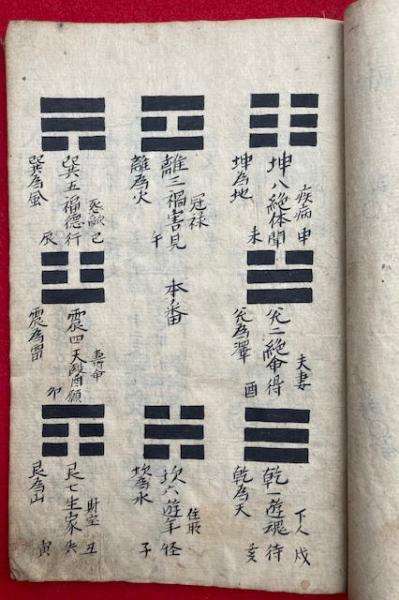 疾病 申
坤八絶体聞
坤為地 未
冠禄
離三禍害見
離為火 午
巳
巽五福徳行
巽為風 辰
夫妻
兌二絶命得
兌為澤 酉
本番
壽命
震四天醫願
震為雷 卯
下人 戌
乾一遊魂待
乾為天 亥
住所
坎六遊年怪
坎為水 子
財宝 丑
艮七生家失
艮為山 寅